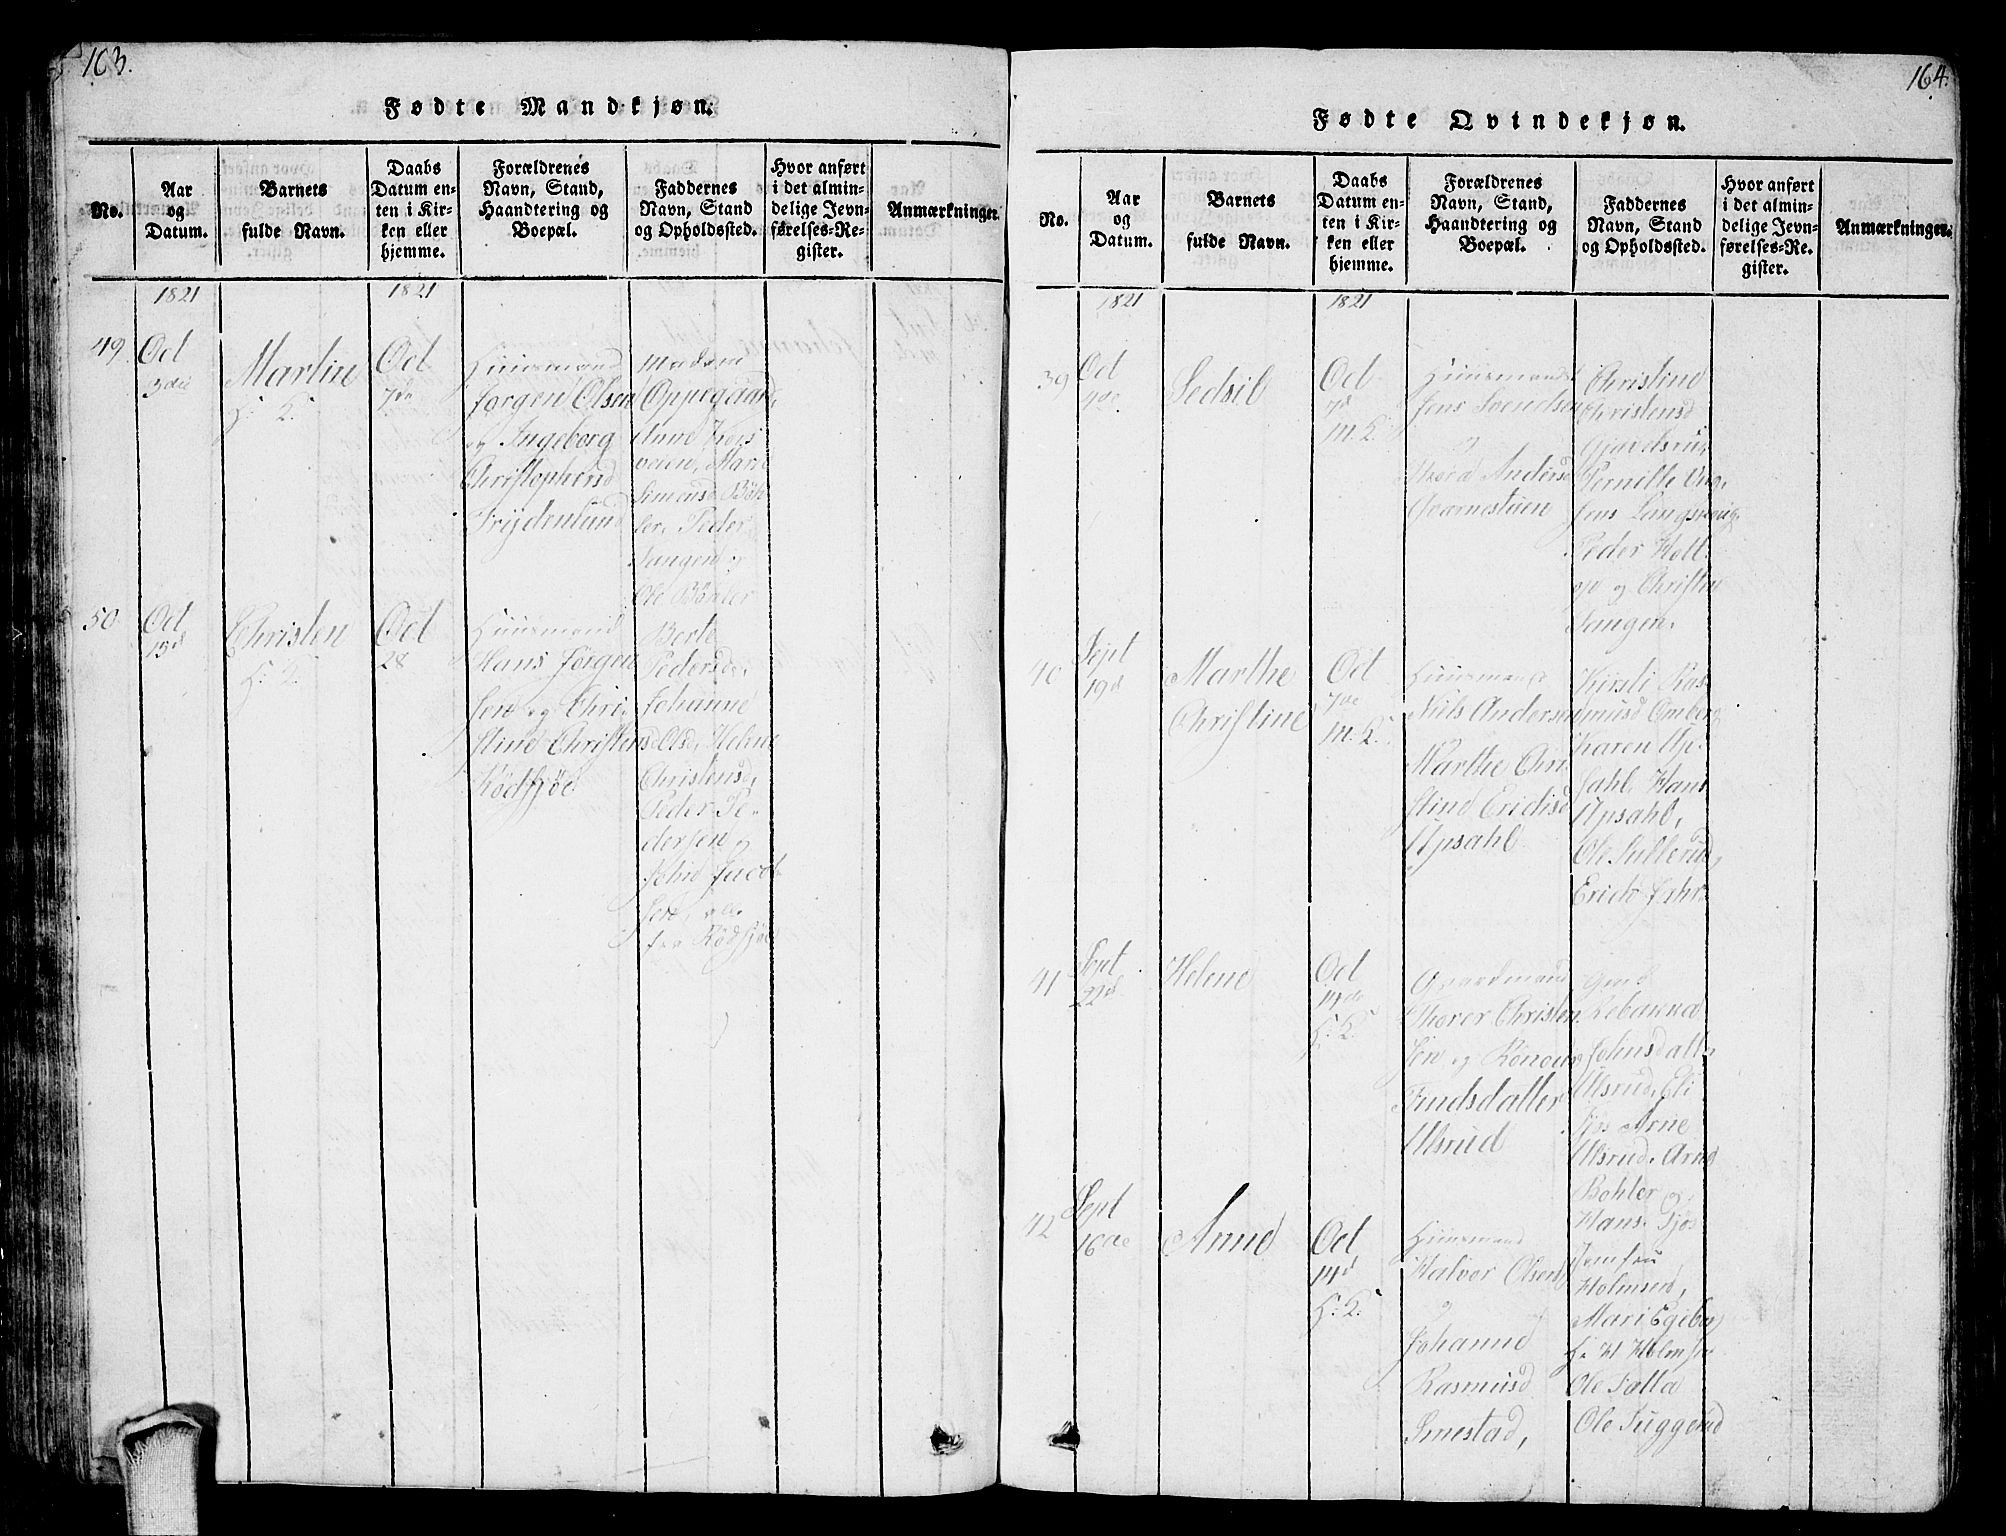 163.
Fødte Mandkjøn.
No.
Aar
og
Datum.
Barnets
fulde Navn.
Daabs
Datum en-
ten i Kir-
ken eller
hjemme.
Forældrenes
Navn, Stand,
Haandtering og
Boepæl.
Faddernes
Navn, Stand
og Opholdssted.
Hvor anført
i det almin-
delige Jevn-
førelses-Re-
gister.
Anmærkninger.
1821
1821
49
Oct
3die
Martin
H: K:
Oct
7de
Huusmand
Jørgen Olsen
og Ingeborg
Christophersd
Frydenlund
Madam
Oppegaard,
Anne Kors
veien, Mari
Simensd Bøh
ler, Peder
Tangen og
Ole Bøhler
50
Oct
13d
Christen
H: K:
Oct
28
Huusmand
Hans Jørgen
sen og Chri
stine Christensd
Kødsjøe
Berte
Pedersd.
Johanne
Olsd, Helene
Christensd,
Peder Pe-
dersen og
John Jacob
sen, alle
fra Rødsjøe
164.
Fødte Qvindekjøn.
No.
Aar
og
Datum.
Barnets
fulde Navn.
Daabs
Datum en-
ten i Kir-
ken eller
hjemme.
Forældrenes
Navn, Stand,
Haandtering og
Boepæl.
Faddernes
Navn, Stand
og Opholdssted.
Hvor anført
i det almin-
delige Jevn-
førelses-Re-
gister.
Anmærkninger.
1821
1821
39
Oct
Sedsil
Oct
7d
M. K.
Huusmand
Jens Svendsen
og
Andersd
Qværnestuen
Christine
Christensd
Pernille
Jens Langsvevig
Peder Holt
og Christen
Tangen.
40
Sept
19d
Marthe
Christine
Oct
7de
M. K.
Huusmand
Niels Andersen
Marthe Chri
stine Erichsd
Upsahl
Kirsti Ras
musd Omberg
Karen Up-
sahl, Hans
Upsahl,
Ole Sullerud,
Erich
41
Sept
22d
Helene
Oct
14de
H: K:
Gaardmand
Thorer Christen
sen og Rønour
Findsdatter
Ulsrud
Johnsdatter
Ulsrud, Eli
Arne
Ulsrud, Arne
Bøhler og
Hans
42
Sept
16de
Anne
Oct
14d
H: K:
Huusmand
Halvor Olsen
og
Johanne
Rasmusd
Smestad,
Jomfru
Holmsen,
Mari
Hr Holmsen
Ole
Ole Tuggerud